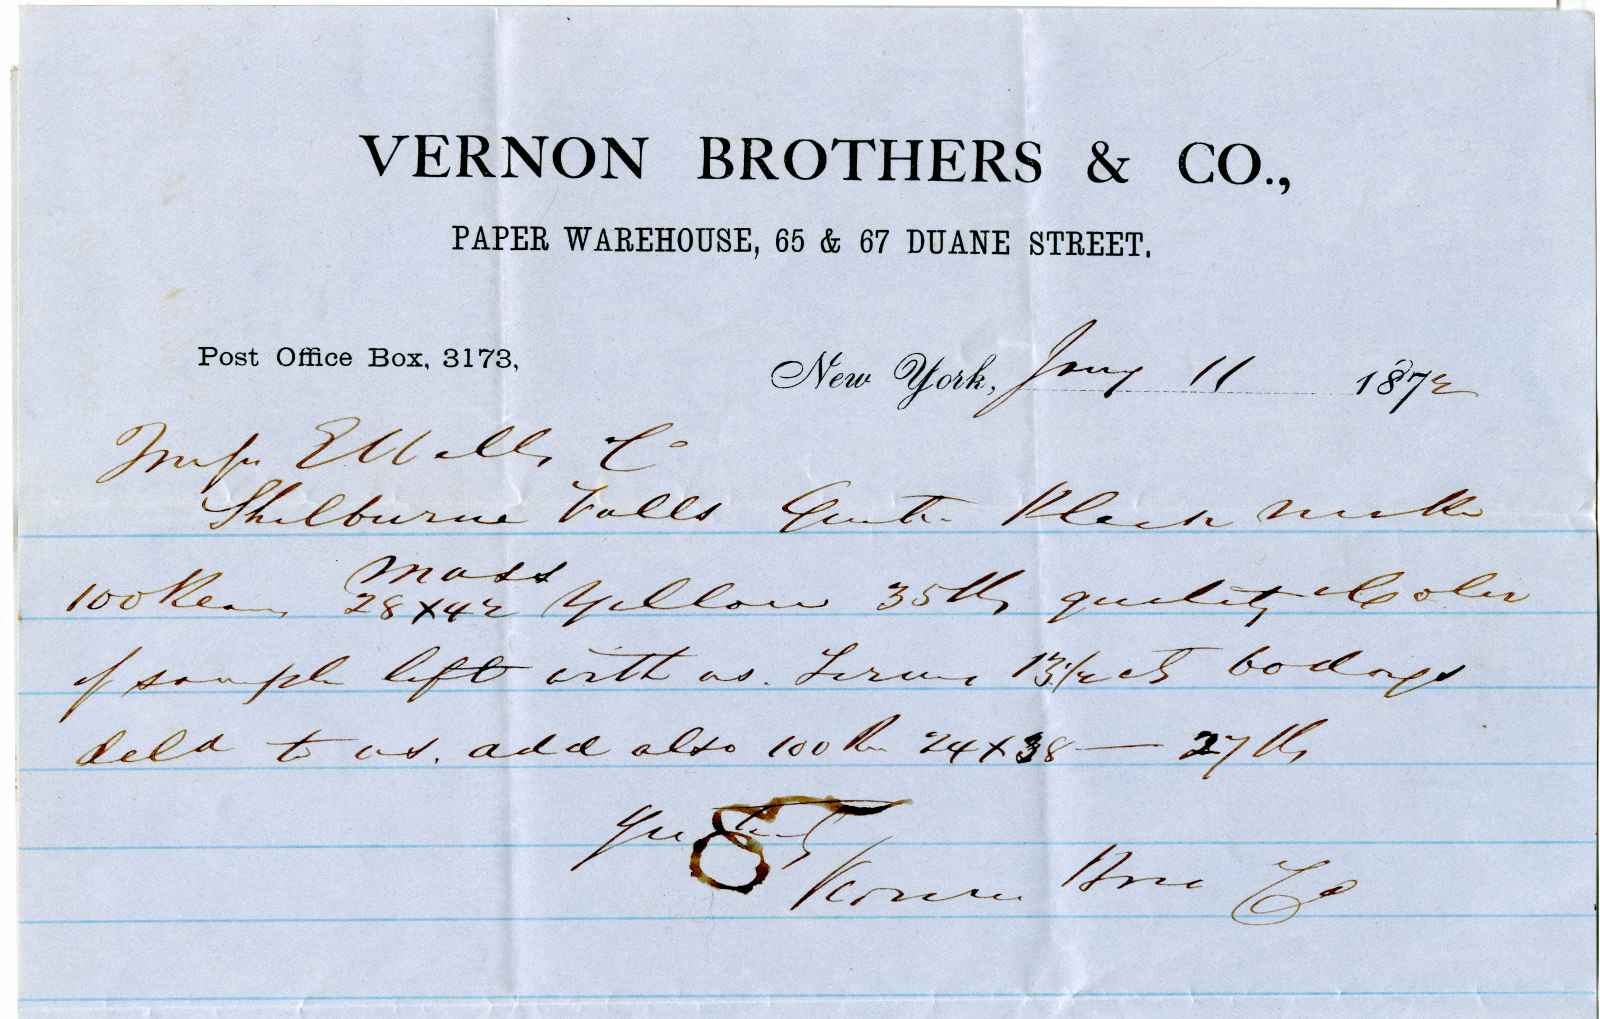 VERNON BROTHERS & CO.,
PAPER WAREHOUSE, 65 & 67 DUANE STREET.
Post Office Box, 3173,
New York, Jany 11 1872
Messrs Co
Shelburne Falls Gents. Please make
Mass
100 Reams 28 x 42 Yellow 35 lbs quality & Color
of sample left with us. Terms 13 1/2 cts 60 days
deld to us. add also 100 Rm 24 x 38 — 27 lbs
Yrs truly
Vernon Bros Co